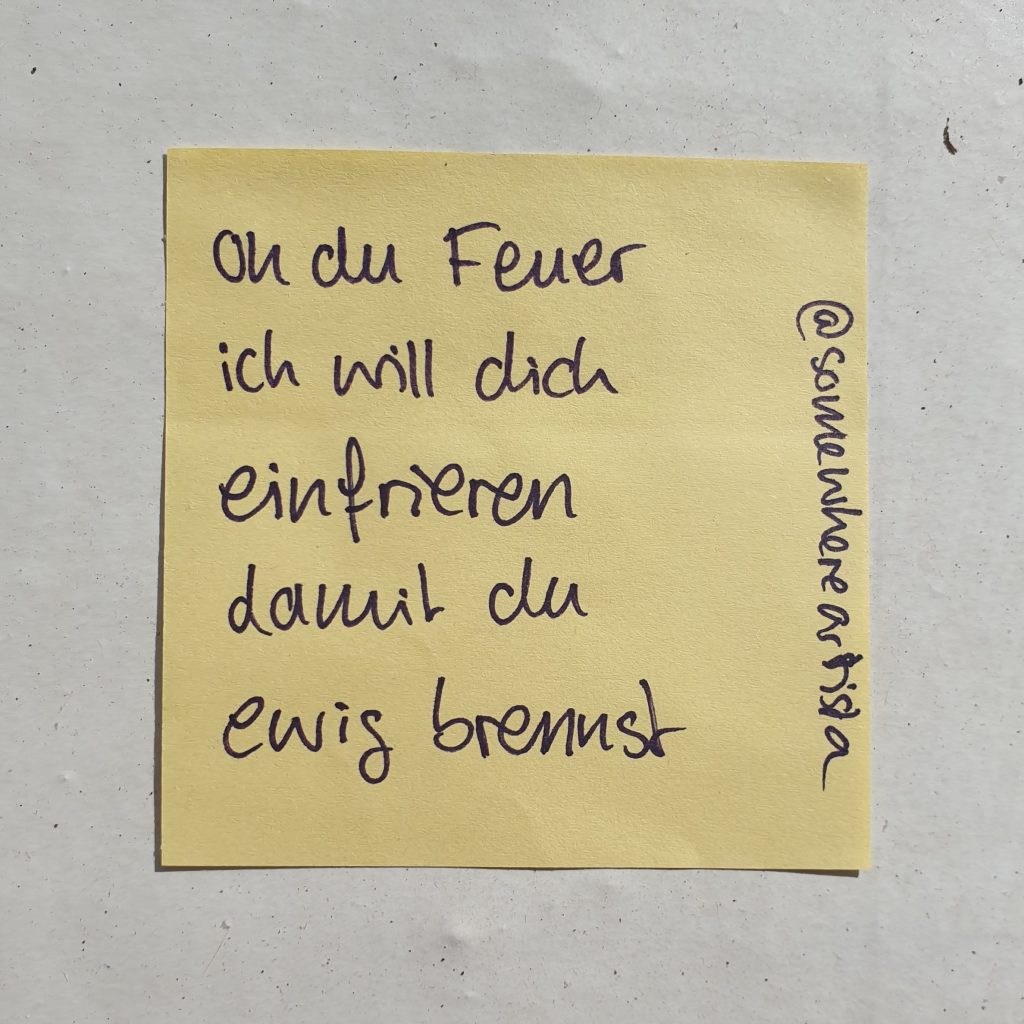 Oh du Feuer
ich will dich
einfrieren
damit du
ewig brennst
@somewhereartista